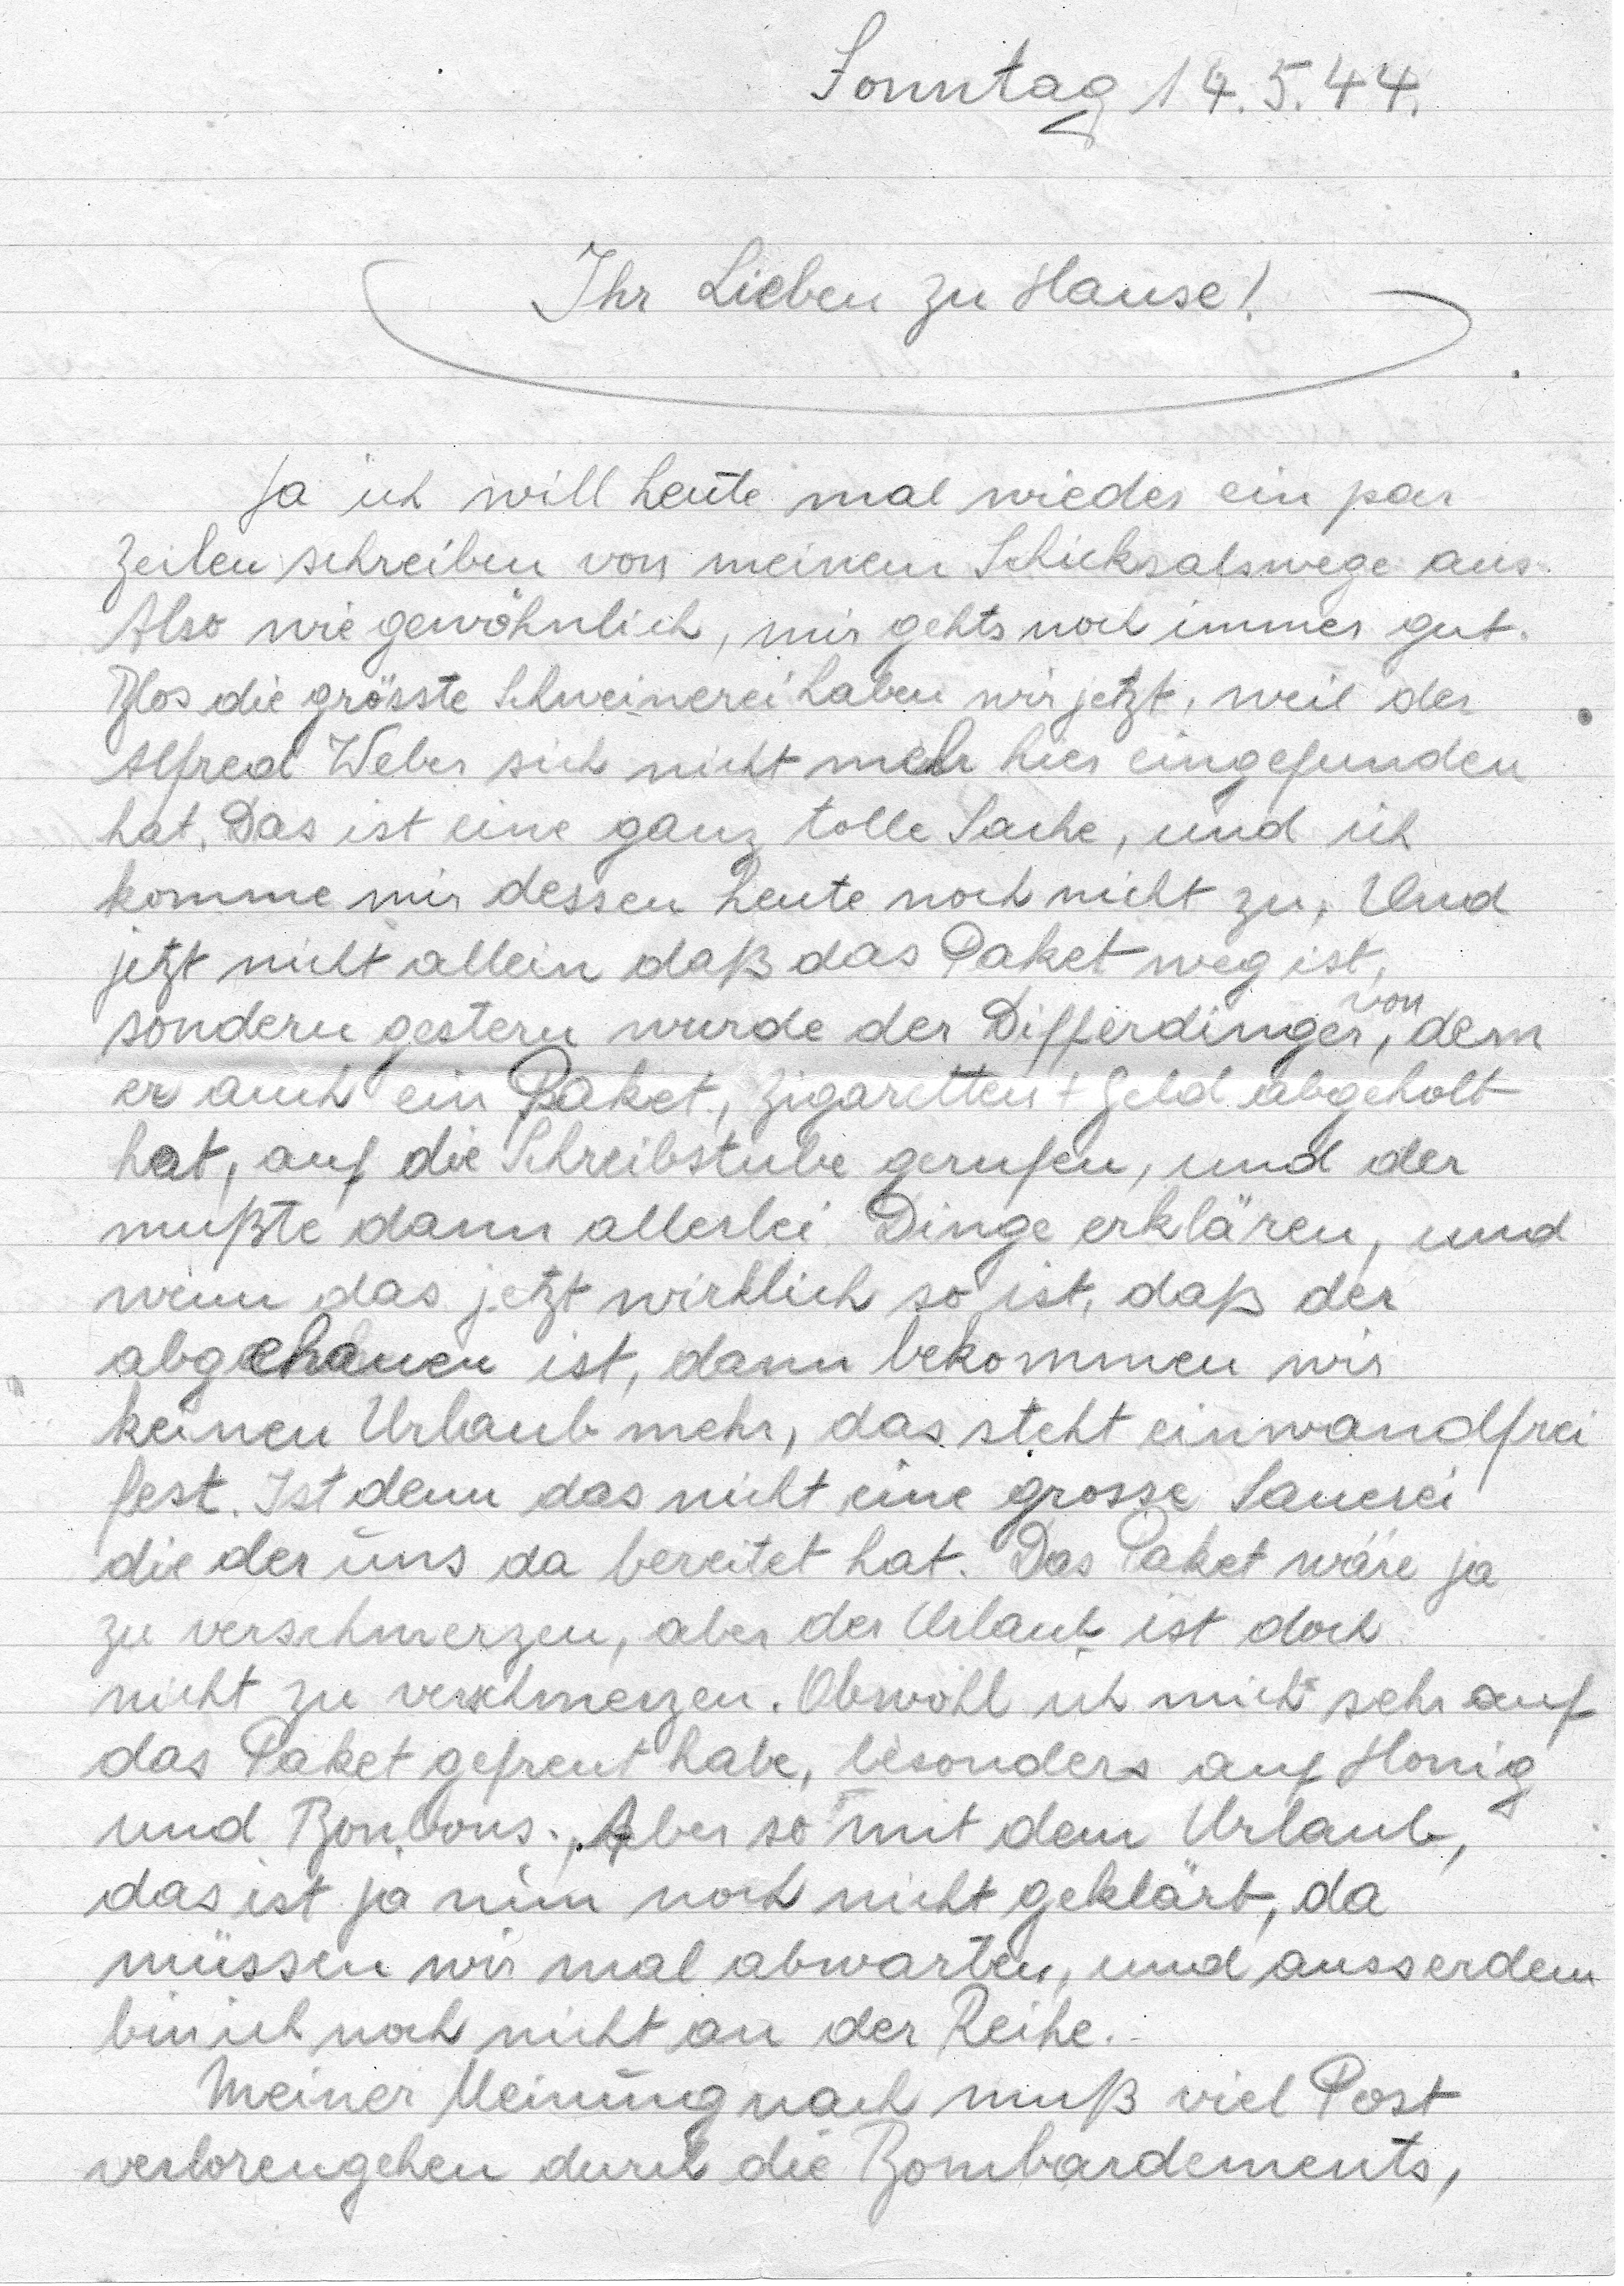 Sonntag 14.5.44.
Ihr Lieben zu Hause!
Ja ich will heute mal wieder ein par
Zeilen schreiben von meinem Schicksalswege aus.
Also wie gewöhnlich, mir gehts noch immer gut.
Blos die grösste Schweinerei haben wir jetzt, weil der
Alfred Weber sich nicht mehr hier eingefunden
hat. Das ist eine ganz tolle Sache, und ich
komme mir dessen heute noch nicht zu. Und
jetzt nicht allein daß das Paket weg ist,
sondern gestern wurde der Differdinger, von dem
er auch ein Paket, Zigaretten + Geld abgeholt
hat, auf die Schreibstube gerufen, und der
mußte dann allerlei Dinge erklären, und
wenn das jetzt wirklich so ist, daß der
abgehauen ist, dann bekommen wir
keinen Urlaub mehr, das steht einwandfrei
fest. Ist denn das nicht eine grosse Sauerei
die der uns da bereitet hat. Das Paket wäre ja
zu verschmerzen, aber der Urlaub ist doch
nicht zu verschmerzen. Obwohl ich mich sehr auf
das Paket gefreut habe, besonders auf Honig
und Bonbons. Aber so mit dem Urlaub,
das ist ja nun noch nicht geklärt, da
müssen wir mal abwarten, und ausserdem
bin ich noch nicht an der Reihe.
Meiner Meinung nach muß viel Post
verlorengehen durch die Bombardements,